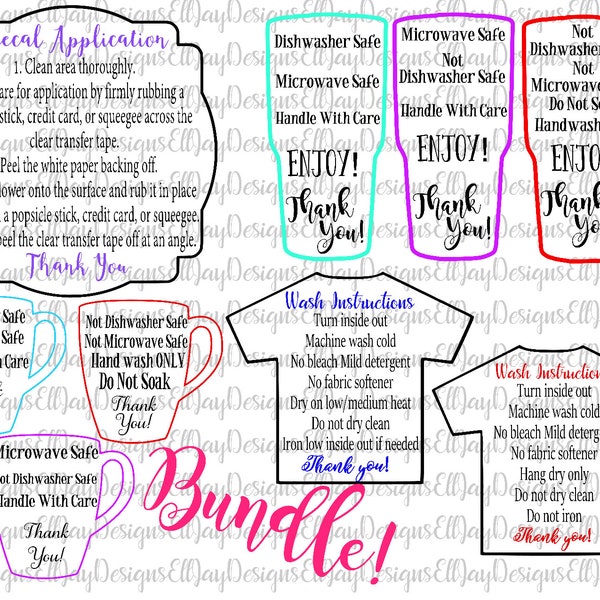 Decal Application
1. Clean area thoroughly.
for application by firmly rubbing a
stick, credit card, or squeegee across the
clear transfer tape.
Peel the white paper backing off.
lower onto the surface and rub it in place
a popsicle stick, credit card, or squeegee.
peel the clear transfer tape off at an angle.
Thank You
Dishwasher Safe
Microwave Safe
Handle With Care
ENJOY!
Thank
You!
Microwave Safe
Not
Dishwasher Safe
Handle With Care
ENJOY!
Thank
You!
Not
Dishwasher
Not
Microwave
Do Not
Handwash
ENJOY
Thank
You
Safe
Safe
Care
Not Dishwasher Safe
Not Microwave Safe
Hand wash ONLY
Do Not Soak
Thank
You!
Microwave Safe
Not Dishwasher Safe
Handle With Care
Thank
You!
Wash Instructions
Turn inside out
Machine wash cold
No bleach Mild detergent
No fabric softener
Dry on low/medium heat
Do not dry clean
Iron low inside out if needed
Thank you!
Wash Instructions
Turn inside out
Machine wash cold
No bleach Mild
No fabric softener
Hang dry only
Do not dry clean
Do not iron
Thank you!
Bundle!
DesignsEllDayDesignsEllDayDesignsEllDay